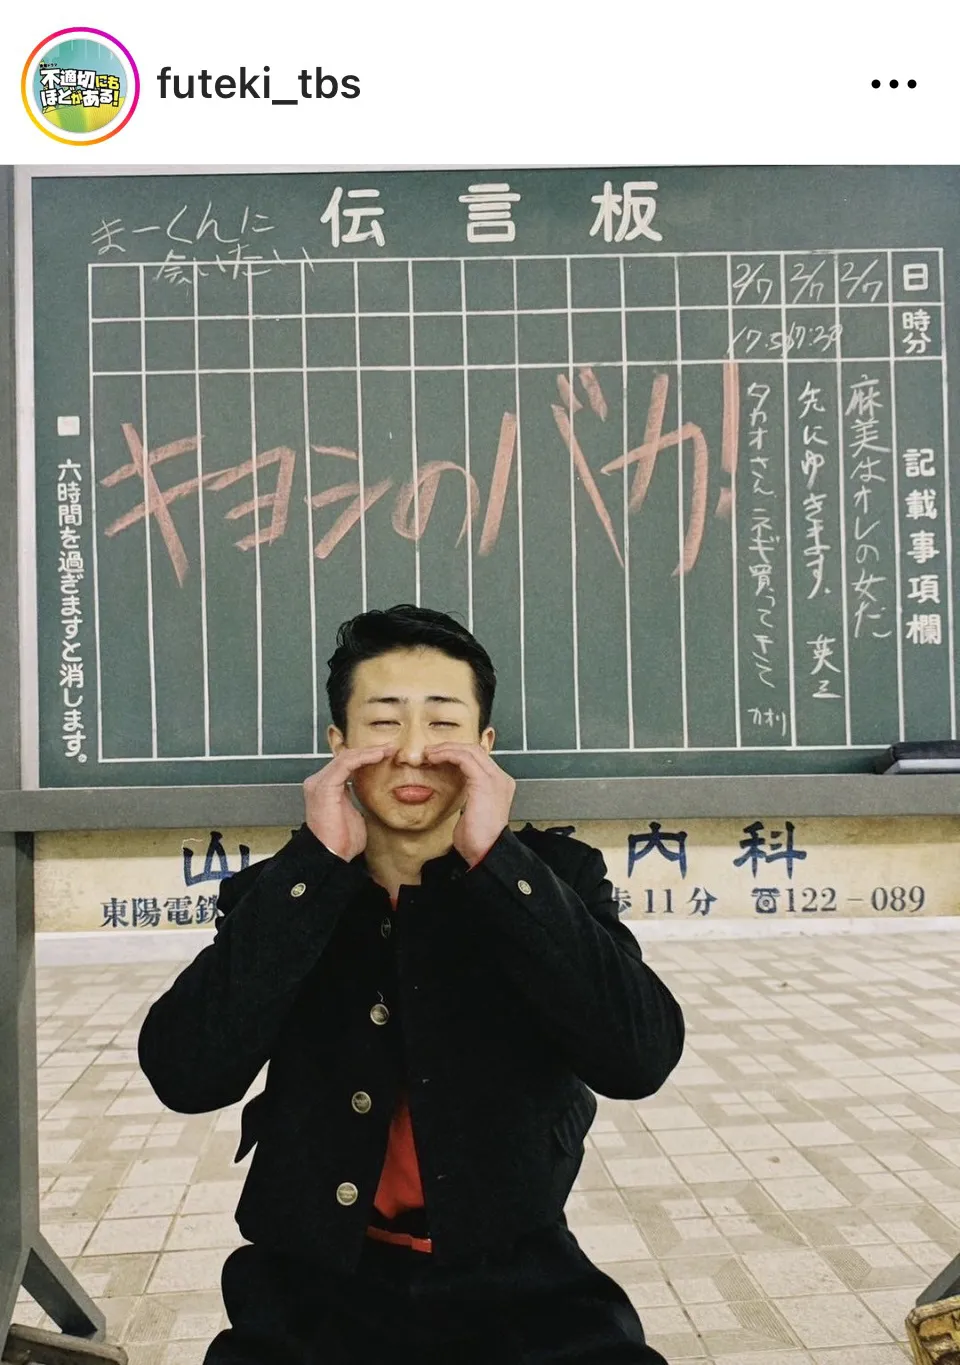 futeki_tbs
不適切にも
ほどがある!
伝言板
まーくんに
会いたい
日
時分
記載事項欄
2/7
麻美はオレの女だ
2/7
17:30
先にゆきます。 英二
2/7
タカオさん、ネギ買ってきて カオリ
キヨシのバカ!
六時間を過ぎますと消します。
山
内科
東陽電鉄
歩11分 ☎122-089